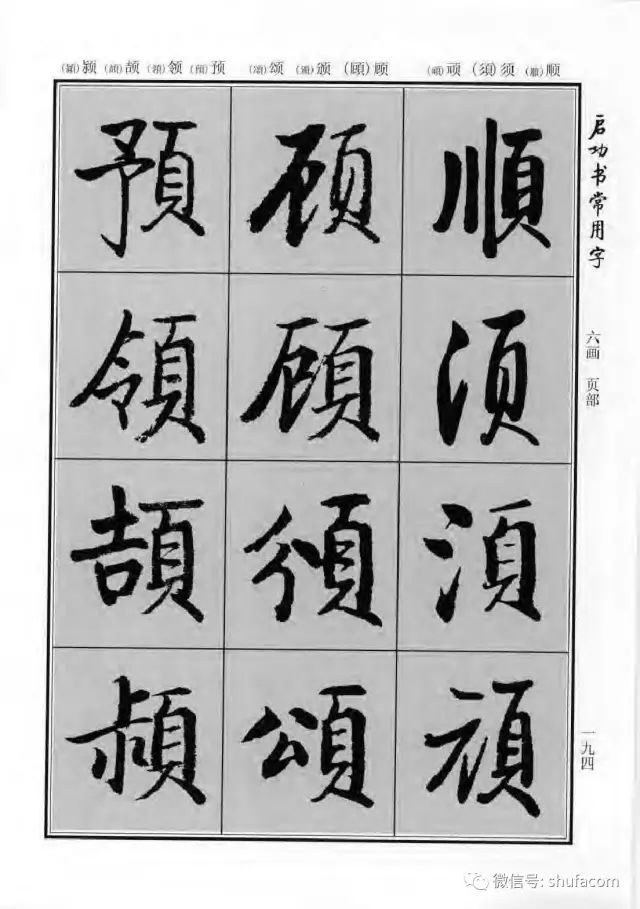 (潁)颍 (頡)颉 (領)领 (預)预 (頌)颂 (頒)颁 (顧)顾 (頑)顽 (須)须 (順)顺
启功书常用字
六画 页部
一九四
順須須頑
顾顾頒頌
預領頡潁
微信号: shufacom